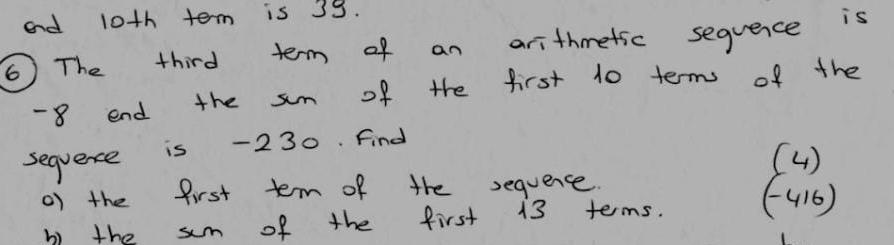 and 10th term is 39.
6 The third term of an arithmetic sequence is
-8 and the sum of the first 10 terms of the
sequence is -230. Find
a) the first term of the sequence. (4)
b) the sum of the first 13 terms. (-416)